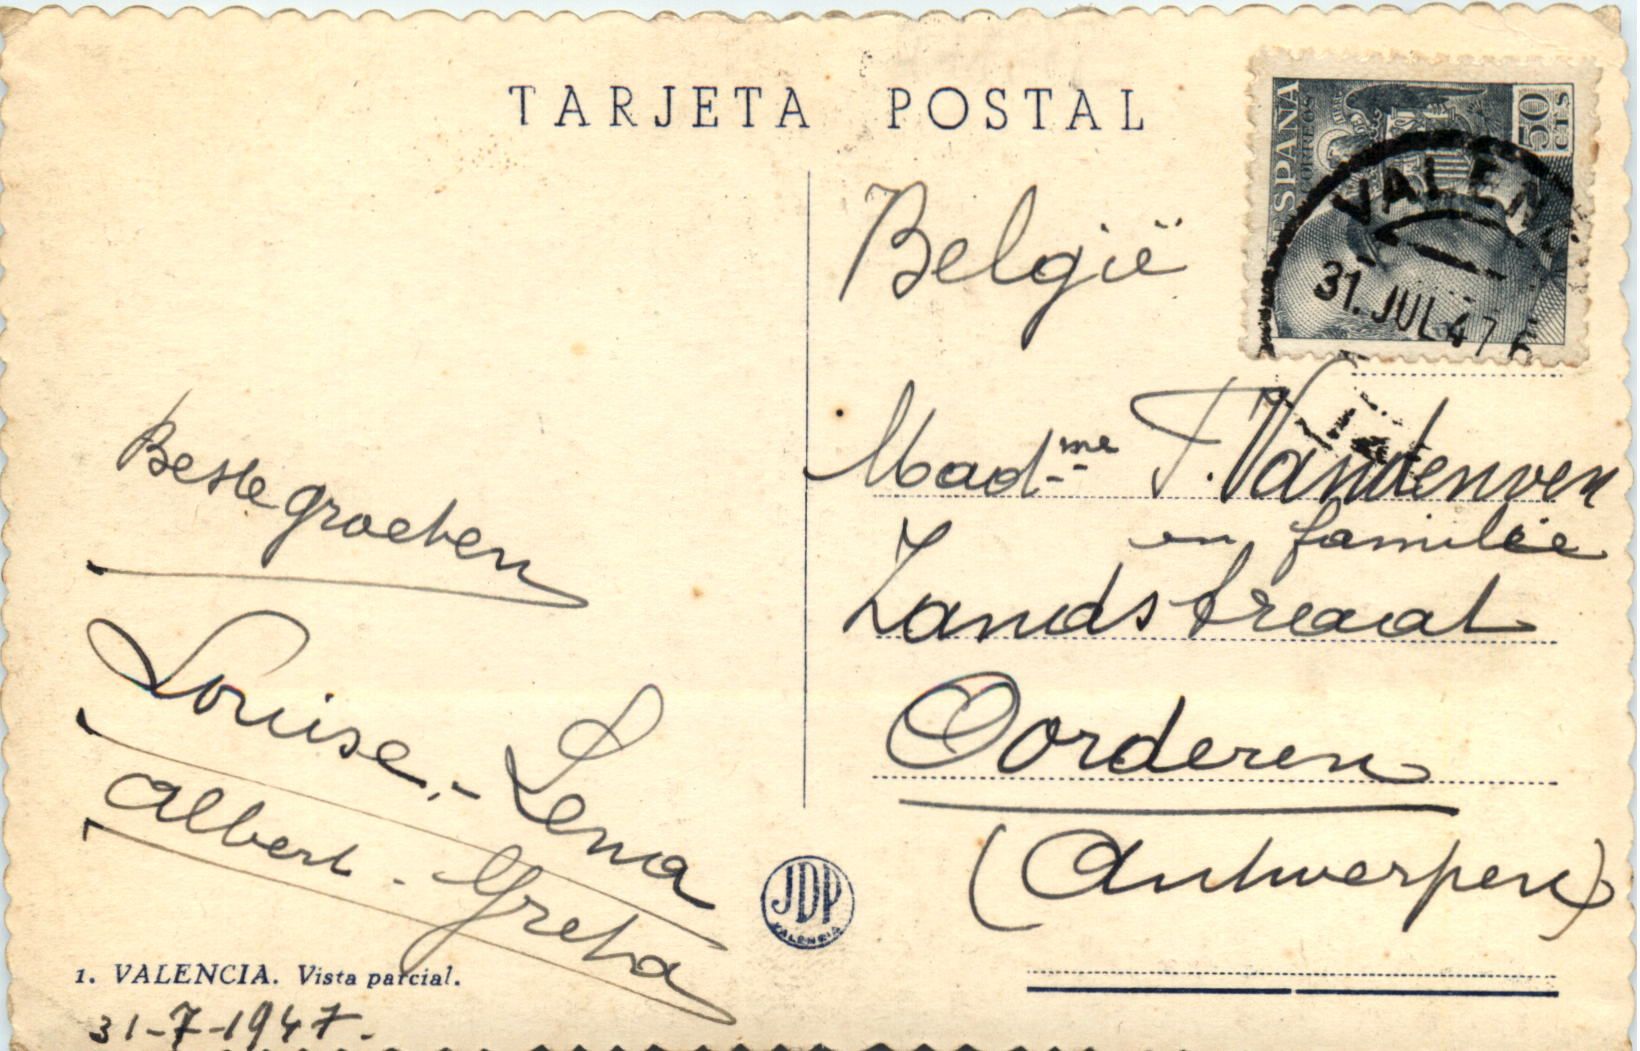 TARJETA POSTAL
ESPAÑA
CORREOS
50 CTS
VALENC
31. JUL 47
België
Mad.me F. Vandenven
en familie
Zandstraat
Oorderen
(Antwerpen)
Beste groeten
Louise - Lena
Albert - Greta
JDP
VALENCIA
1. VALENCIA. Vista parcial.
31-7-1947.